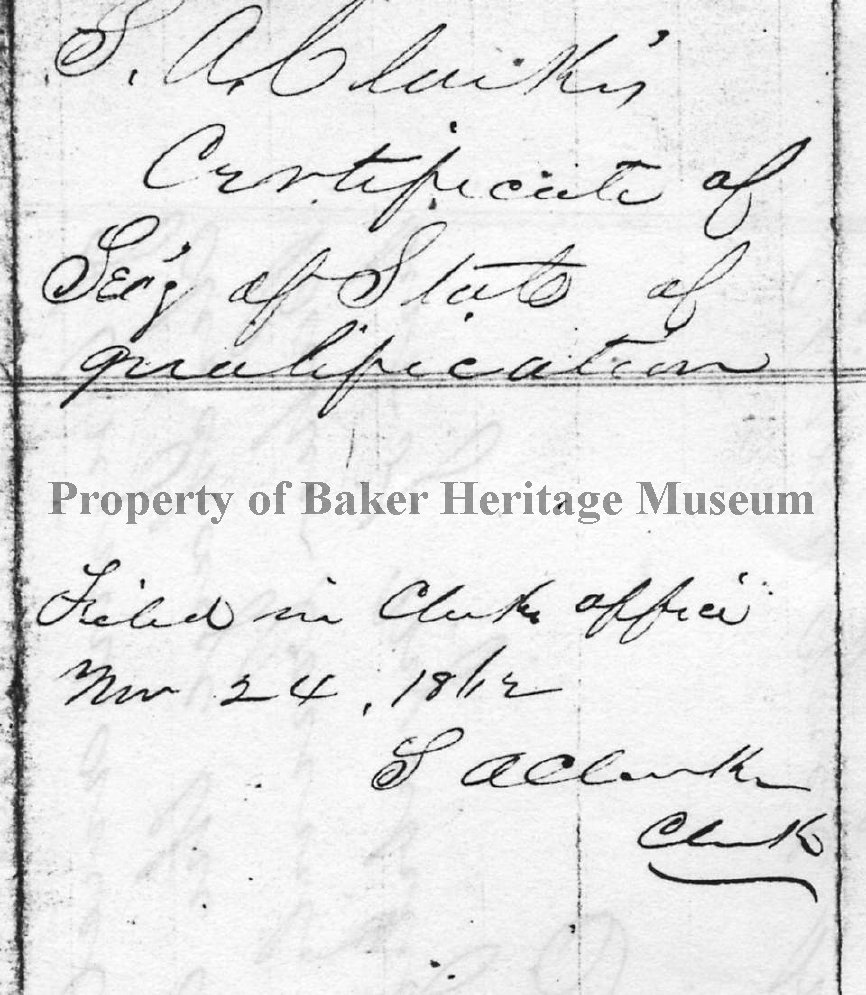 S. A. Clark's
Certificate of
Sec'y of State of
qualification
Property of Baker Heritage Museum
Filed in Clerks office
Nov 24, 1862
S A Clarke
Clerk